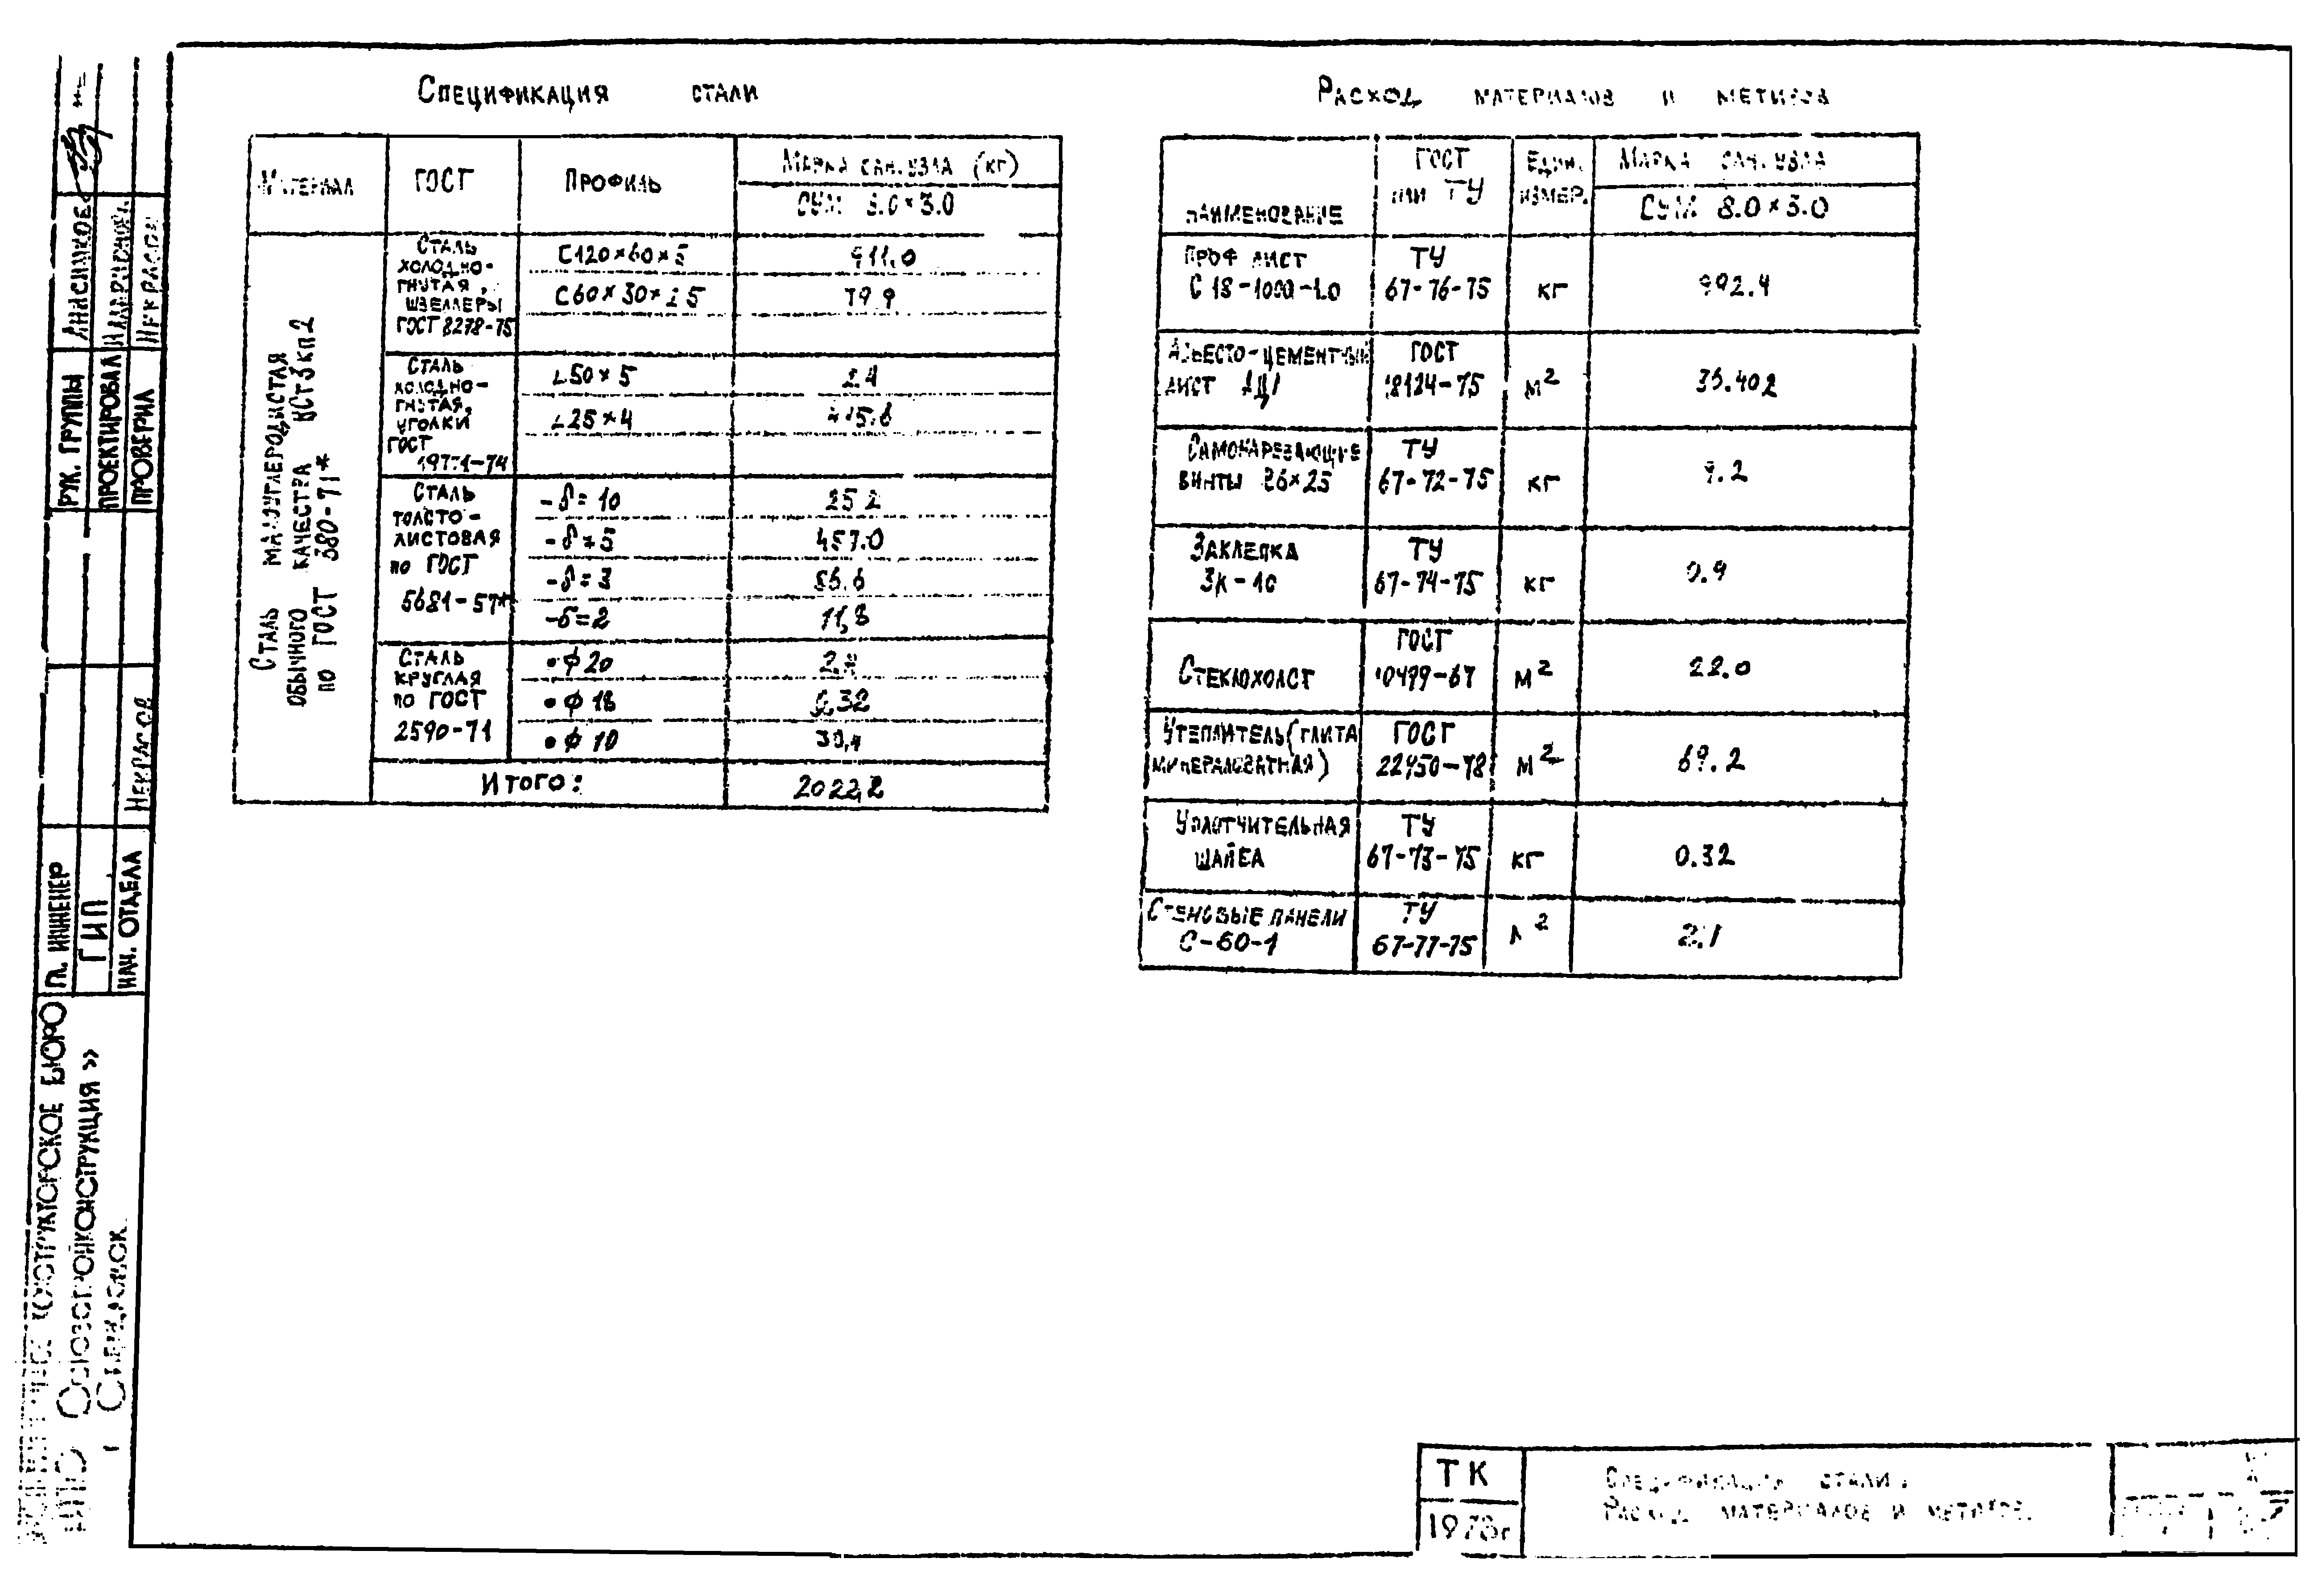 Спецификация стали
Материал
ГОСТ
Профиль
Марка сан.узла (кг)
СУМ 8.0×3.0
Сталь малоуглеродистая
обычного качества ВСт3кп2
по ГОСТ 380-71*
Сталь
холодно-
гнутая,
швеллеры
ГОСТ 8278-75
С120×60×5
911.0
С60×30×2.5
79.9
Сталь
холодно-
гнутая,
уголки
ГОСТ
19771-74
∟50×5
2.4
∟25×4
Сталь
толсто-
листовая
по ГОСТ
5681-57*
-δ=10
25.2
-δ=5
457.0
-δ=3
-δ=2
11,8
Сталь
круглая
по ГОСТ
2590-71
•ф20
•ф18
•ф10
Итого:
2022,2
Расход материалов и метизов
Наименование
ГОСТ
или ТУ
Един.
измер.
Марка сан.узла
СУМ 8.0×3.0
Проф лист
С18-1000-1.0
ТУ
67-76-75
кг
992.4
Асбесто-цементный
лист
ГОСТ
18124-75
м²
Самонарезающие
винты В6×25
ТУ
67-72-75
кг
9.2
Заклепка
ЗК-10
ТУ
67-74-75
кг
0.9
Стеклохолст
ГОСТ
10499-67
м²
22.0
Утеплитель (плита
минераловатная)
ГОСТ
м²
69.2
Уплотнительная
шайба
ТУ
67-73-75
кг
0.32
Стеновые панели
С-60-1
ТУ
67-77-75
м²
2.1
Рук. группы Анисимков
Проектировал
Проверил Некрасов
Гл. инженер
ГИП
Нач. отдела Некрасов
конструкторское бюро
ВПО Союзстройконструкция»
г Свердловск
ТК
1978г
Спецификация стали.
Расход материалов и метизов.